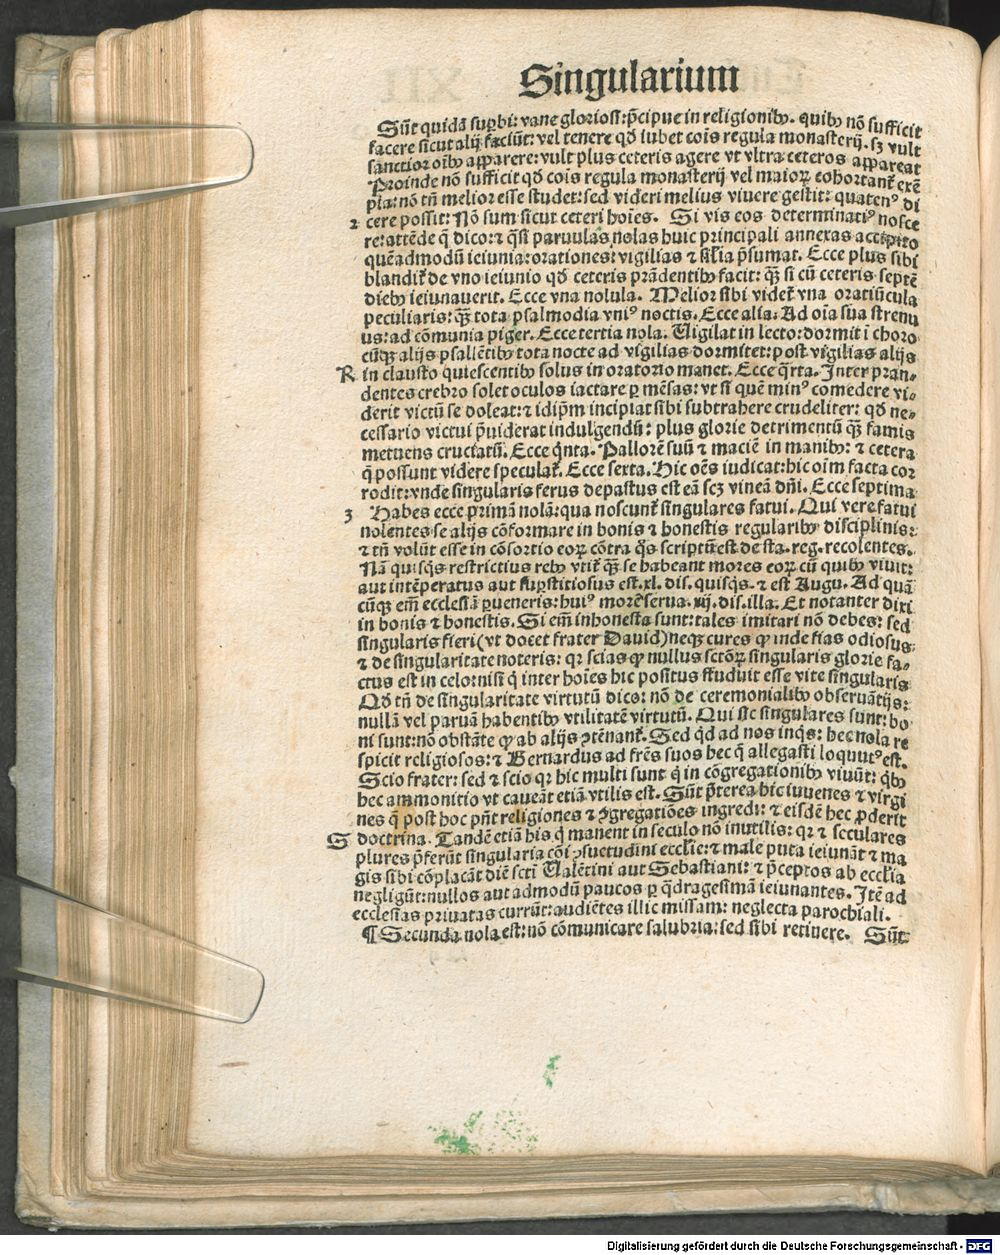 Singularium
Sūt quidā suꝑbi: vane gloriosi: p̄cipue in religionibꝰ. quibꝰ nō sufficit
facere sicut alij faciūt: vel tenere qđ iubet cōis regula monasterij. sꝫ vult
sanctior oībꝰ apparere: vult plus ceteris agere vt vltra ceteros appareat
Proinde nō sufficit qđ cōis regula monasterij vel maioꝝ cohortant̄ exē
pla: nō tn̄ melior esse studet: sed videri melius viuere gestit: quatenꝰ di
2 cere possit: Nō sum sicut ceteri hoīes. Si vis eos determinatiꝰ nosce
re: attēde q̄ dico: ⁊ q̄si paruulas nolas huic principali annexas accipito
quēadmodū ieiunia: orationes: vigilias ⁊ sil̄ia p̄sumat. Ecce plus sibi
blandit̄ de vno ieiunio qđ ceteris prādentibꝰ facit: qȝ̄ si cū ceteris septē
diebꝰ ieiunauerit. Ecce vna nolula. Melior sibi videt̄ vna oratiūcula
peculiaris: qȝ̄ tota psalmodia vniꝰ noctis. Ecce alia: Ad oīa sua strenu
us: ad cōmunia piger. Ecce tertia nola. Uigilat in lecto: dormit ī choro
cūqȝ alijs psallētibꝰ tota nocte ad vigilias dormitet: post vigilias alijs
R in claustro quiescentibꝰ solus in oratorio manet. Ecce q̄rta. Inter pran-
dentes crebro solet oculos iactare ꝑ mēsas: vt si quē minꝰ comedere vi-
derit victū se doleat: ⁊ idip̄m incipiat sibi subtrahere crudeliter: qđ ne-
cessario victui p̄uiderat indulgendū: plus glorie detrimentū qȝ̄ famis
metuens cruciatū. Ecce q̄nta. Pallorē suū ⁊ maciē in manibꝰ: ⁊ cetera
q̄ possunt videre speculat̄. Ecce sexta. Hic oēs iudicat: hic oīm facta cor
rodit: vnde singularis ferus depastus est eā scꝫ vineā dn̄i. Ecce septima
3 Habes ecce primā nolā: qua noscunt̄ singulares fatui. Qui vere fatui
nolentes se alijs cōformare in bonis ⁊ honestis regularibꝰ disciplinis:
⁊ tn̄ volūt esse in cōsortio eoꝝ cōtra q̄s scriptū est de sta. reg. recolentes.
Nā quisq̄s restrictius rebꝰ vtit̄ qȝ̄ se habeant mores eoꝝ cū quibꝰ viuit:
aut intēperatus aut suꝑstitiosus est. xl. dis. quisq̄s. ⁊ est Augu. Ad quā
cūqȝ em̄ ecclesiā ꝑueneris: huiꝰ morē serua. xij. dis. illa. Et notanter dixi
in bonis ⁊ honestis. Si em̄ inhonesta sunt: tales imitari nō debes: sed
singularis fieri (vt docet frater Dauid) neqȝ cures ꝙ inde fias odiosus:
⁊ de singularitate noteris: qꝛ scias ꝙ nullus sctōꝝ singularis glorie fa-
ctus est in celo: nisi q̇ inter hoīes hic positus studuit esse vite singularis
Qđ tn̄ de singularitate virtutū dico: nō de ceremonialibꝰ obseruātijs:
nullā vel paruā habentibꝰ vtilitatē virtutū. Qui sic singulares sunt: bo
ni sunt: nō obstāte ꝙ ab alijs ꝯtēnant̄. Sed qđ ad nos inq̄s: hec nola re
spicit religiosos: ⁊ Bernardus ad frēs suos hec q̄ allegasti loqutꝰ est.
Scio frater: sed ⁊ scio qꝛ hic multi sunt q̇ in cōgregationibꝰ viuūt: q̇bꝰ
hec ammonitio vt caueāt etiā vtilis est. Sūt p̄terea hic iuuenes ⁊ virgi
nes q̄ post hoc pn̄t religiones ⁊ ꝯgregatiōes ingredi: ⁊ eisdē hec ꝓderit
S doctrina. Tandē etiā his q̇ manent in seculo nō inutilis: qꝛ ⁊ seculares
plures p̄ferūt singularia cōi ꝯsuetudini eccl̄ie: ⁊ male puta ieiunāt ⁊ ma
gis sibi cōplacāt diē scti Ualētini aut Sebastiani: ⁊ p̄ceptos ab eccl̄ia
negligūt: nullos aut admodū paucos ꝑ q̄dragesimā ieiunantes. Itē ad
ecclesias priuatas currūt: audiētes illic missam: neglecta parochiali.
¶ Secunda nola est: nō cōmunicare salubria: sed sibi retinere. Sūt
Digitalisierung gefördert durch die Deutsche Forschungsgemeinschaft - DFG